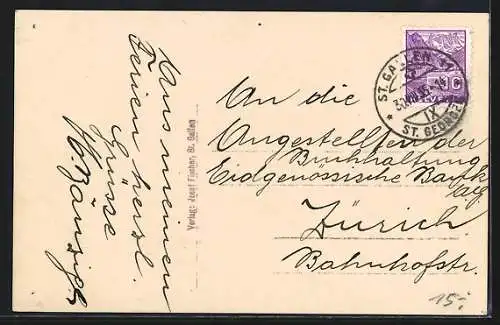 Aus meinen
Ferien herzl.
Grüsse
Verlag: Josef Fischer, St. Gallen
ST. GALLEN 11
ST. GEORGEN
An die
Angestellten der
Buchhaltung
Eidgenössische Bank
A.G.
Zürich
Bahnhofstr.
15.-